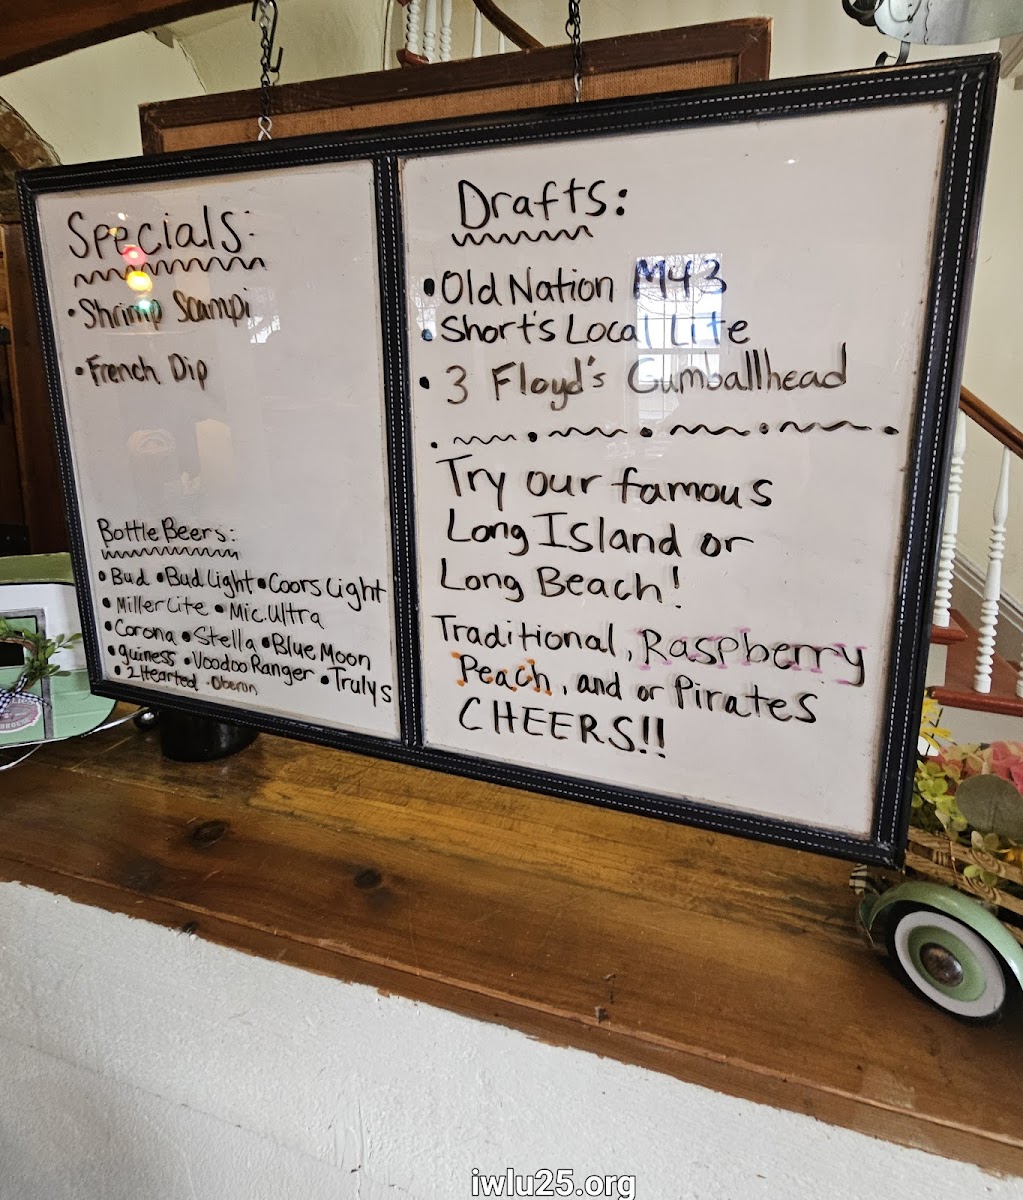 Specials:
• Shrimp Scampi
• French Dip
Bottle Beers:
• Bud • Bud Light • Coors Light
• Miller Lite • Mic. Ultra
• Corona • Stella • Blue Moon
• guiness • Voodoo Ranger • Trulys
• 2Hearted • Oberon
Drafts:
• Old Nation M43
• Short's Local Lite
• 3 Floyd's Gumballhead
Try our famous
Long Island or
Long Beach!
Traditional, Raspberry
Peach, and or Pirates
CHEERS!!
iwlu25.org